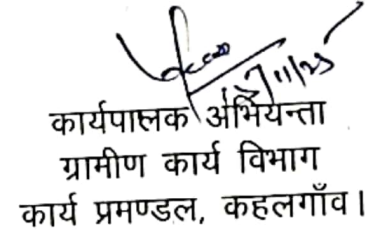 कार्यपालक अभियन्ता
ग्रामीण कार्य विभाग
कार्य प्रमण्डल, कहलगाँव।